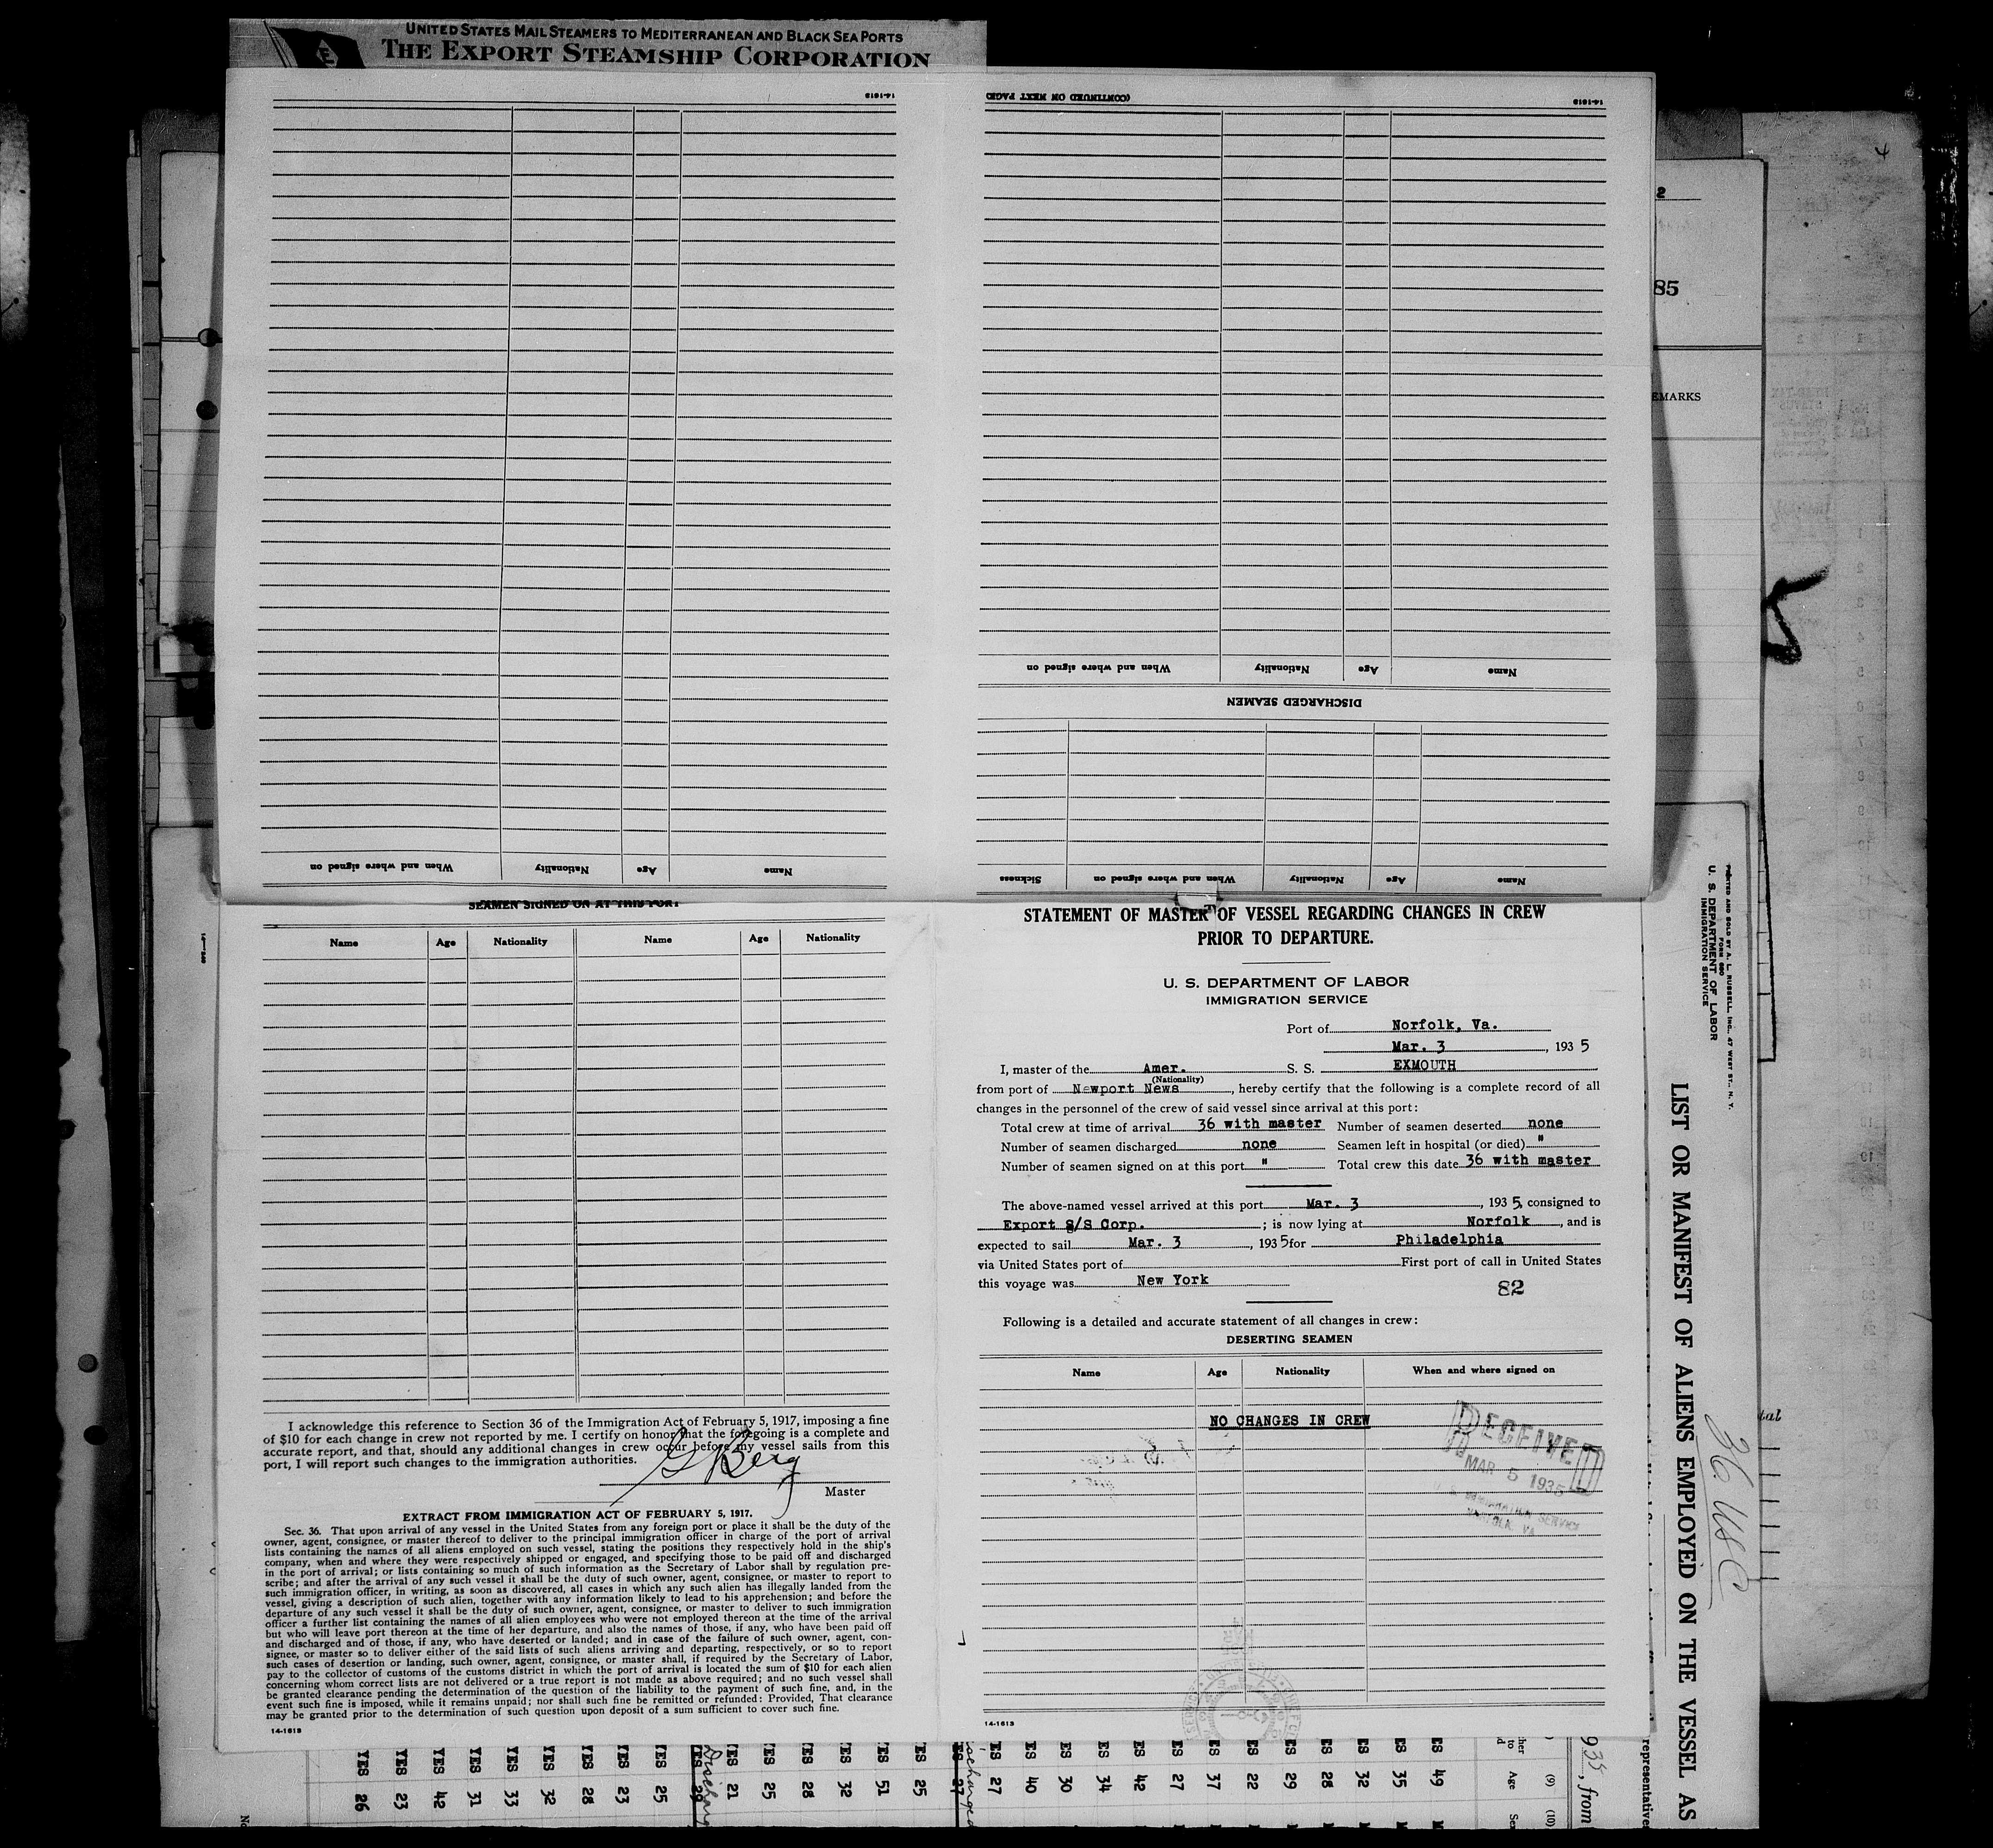 UNITED STATES MAIL STEAMERS TO MEDITERRANEAN AND BLACK SEA PORTS
THE EXPORT STEAMSHIP CORPORATION
14-1613
(CONTINUED ON NEXT PAGE)
14-1613
When and where signed on Nationality Age Name
DISCHARGED SEAMEN
When and where signed on Nationality Age Name
Sickness When and where signed on Nationality Age Name
SEAMEN SIGNED ON AT THIS PORT
Name Age Nationality Name Age Nationality
I acknowledge this reference to Section 36 of the Immigration Act of February 5, 1917, imposing a fine
of $10 for each change in crew not reported by me. I certify on honor that the foregoing is a complete and
accurate report, and that, should any additional changes in crew occur before my vessel sails from this
port, I will report such changes to the immigration authorities.
G Berg
Master
EXTRACT FROM IMMIGRATION ACT OF FEBRUARY 5, 1917.
Sec. 36. That upon arrival of any vessel in the United States from any foreign port or place it shall be the duty of the
owner, agent, consignee, or master thereof to deliver to the principal immigration officer in charge of the port of arrival
lists containing the names of all aliens employed on such vessel, stating the positions they respectively hold in the ship's
company, when and where they were respectively shipped or engaged, and specifying those to be paid off and discharged
in the port of arrival; or lists containing so much of such information as the Secretary of Labor shall by regulation pre-
scribe; and after the arrival of any such vessel it shall be the duty of such owner, agent, consignee, or master to report to
such immigration officer, in writing, as soon as discovered, all cases in which any such alien has illegally landed from the
vessel, giving a description of such alien, together with any information likely to lead to his apprehension; and before the
departure of any such vessel it shall be the duty of such owner, agent, consignee, or master to deliver to such immigration
officer a further list containing the names of all alien employees who were not employed thereon at the time of the arrival
but who will leave port thereon at the time of her departure, and also the names of those, if any, who have been paid off
and discharged and of those, if any, who have deserted or landed; and in case of the failure of such owner, agent, con-
signee, or master so to deliver either of the said lists of such aliens arriving and departing, respectively, or so to report
such cases of desertion or landing, such owner, agent, consignee, or master shall, if required by the Secretary of Labor,
pay to the collector of customs of the customs district in which the port of arrival is located the sum of $10 for each alien
concerning whom correct lists are not delivered or a true report is not made as above required; and no such vessel shall
be granted clearance pending the determination of the question of the liability to the payment of such fine, and, in the
event such fine is imposed, while it remains unpaid; nor shall such fine be remitted or refunded: Provided, That clearance
may be granted prior to the determination of such question upon deposit of a sum sufficient to cover such fine.
14-1613
STATEMENT OF MASTER OF VESSEL REGARDING CHANGES IN CREW
PRIOR TO DEPARTURE.
U. S. DEPARTMENT OF LABOR
IMMIGRATION SERVICE
Port of Norfolk, Va.
Mar. 3, 1935
I, master of the Amer. S. S. EXMOUTH
(Nationality)
from port of Newport News, hereby certify that the following is a complete record of all
changes in the personnel of the crew of said vessel since arrival at this port:
Total crew at time of arrival 36 with master Number of seamen deserted none
Number of seamen discharged none Seamen left in hospital (or died) "
Number of seamen signed on at this port " Total crew this date 36 with master
The above-named vessel arrived at this port Mar. 3, 1935, consigned to
Export S/S Corp. ; is now lying at Norfolk, and is
expected to sail Mar. 3, 1935 for Philadelphia
via United States port of First port of call in United States
this voyage was New York
82
Following is a detailed and accurate statement of all changes in crew:
DESERTING SEAMEN
Name Age Nationality When and where signed on
NO CHANGES IN CREW
RECEIVED
MAR 5 1935
U. S. IMMIGRATION SERVICE
NORFOLK, VA.
14-1613
2
85
EMARKS
4
PRINTED AND SOLD BY A. L. RUSSELL, INC., 47 WEST ST., N. Y.
FORM 680
U. S. DEPARTMENT OF LABOR
IMMIGRATION SERVICE
LIST OR MANIFEST OF ALIENS EMPLOYED ON THE VESSEL AS
36 USC
representatives
935, from
(9) (10)
Age Sex
YES 26
YES 23
YES 42
YES 31
YES 33
YES 32
YES 28
YES 23
YES 25
YES 29
YES 21
YES 25
YES 28
YES 32
YES 51
ES 25
ES 27
ES 27
ES 40
ES 30
ES 34
ES 42
ES 27
ES 37
ES 22
ES 29
ES 28
ES 32
ES 35
ES 49